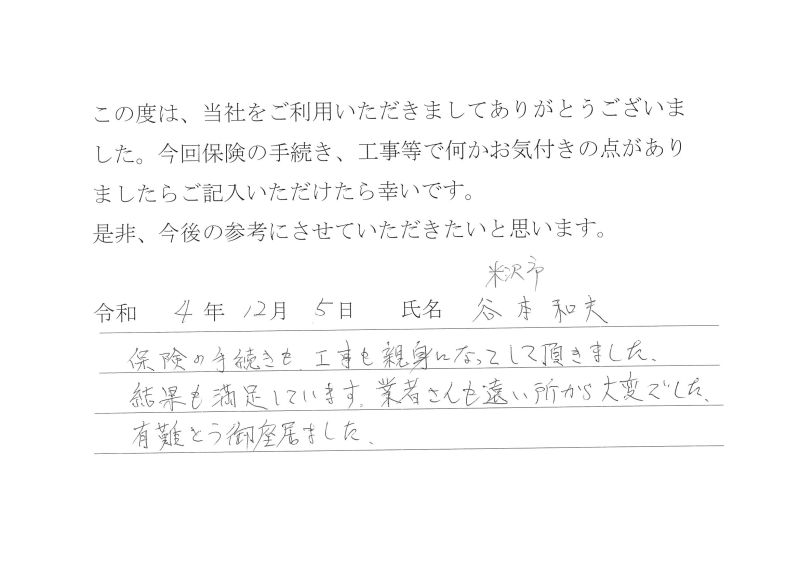 この度は、当社をご利用いただきましてありがとうございま
した。今回保険の手続き、工事等で何かお気付きの点があり
ましたらご記入いただけたら幸いです。
是非、今後の参考にさせていただきたいと思います。
米沢市
令和 4年 12月 5日 氏名 谷本和夫
保険の手続きも、工事も親身になってして頂きました、
結果も満足しています。業者さんも遠い所から大変でした、
有難とう御座居ました、